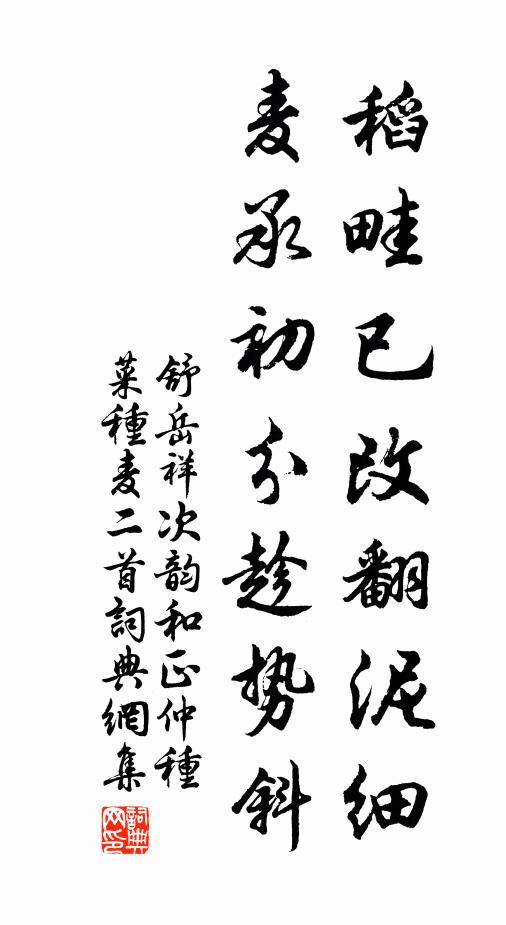 稻畦已改翻泥细
麦承初分趁势斜
舒岳祥次韵和正仲種
菜種麦二首詞典網集
詞典网印